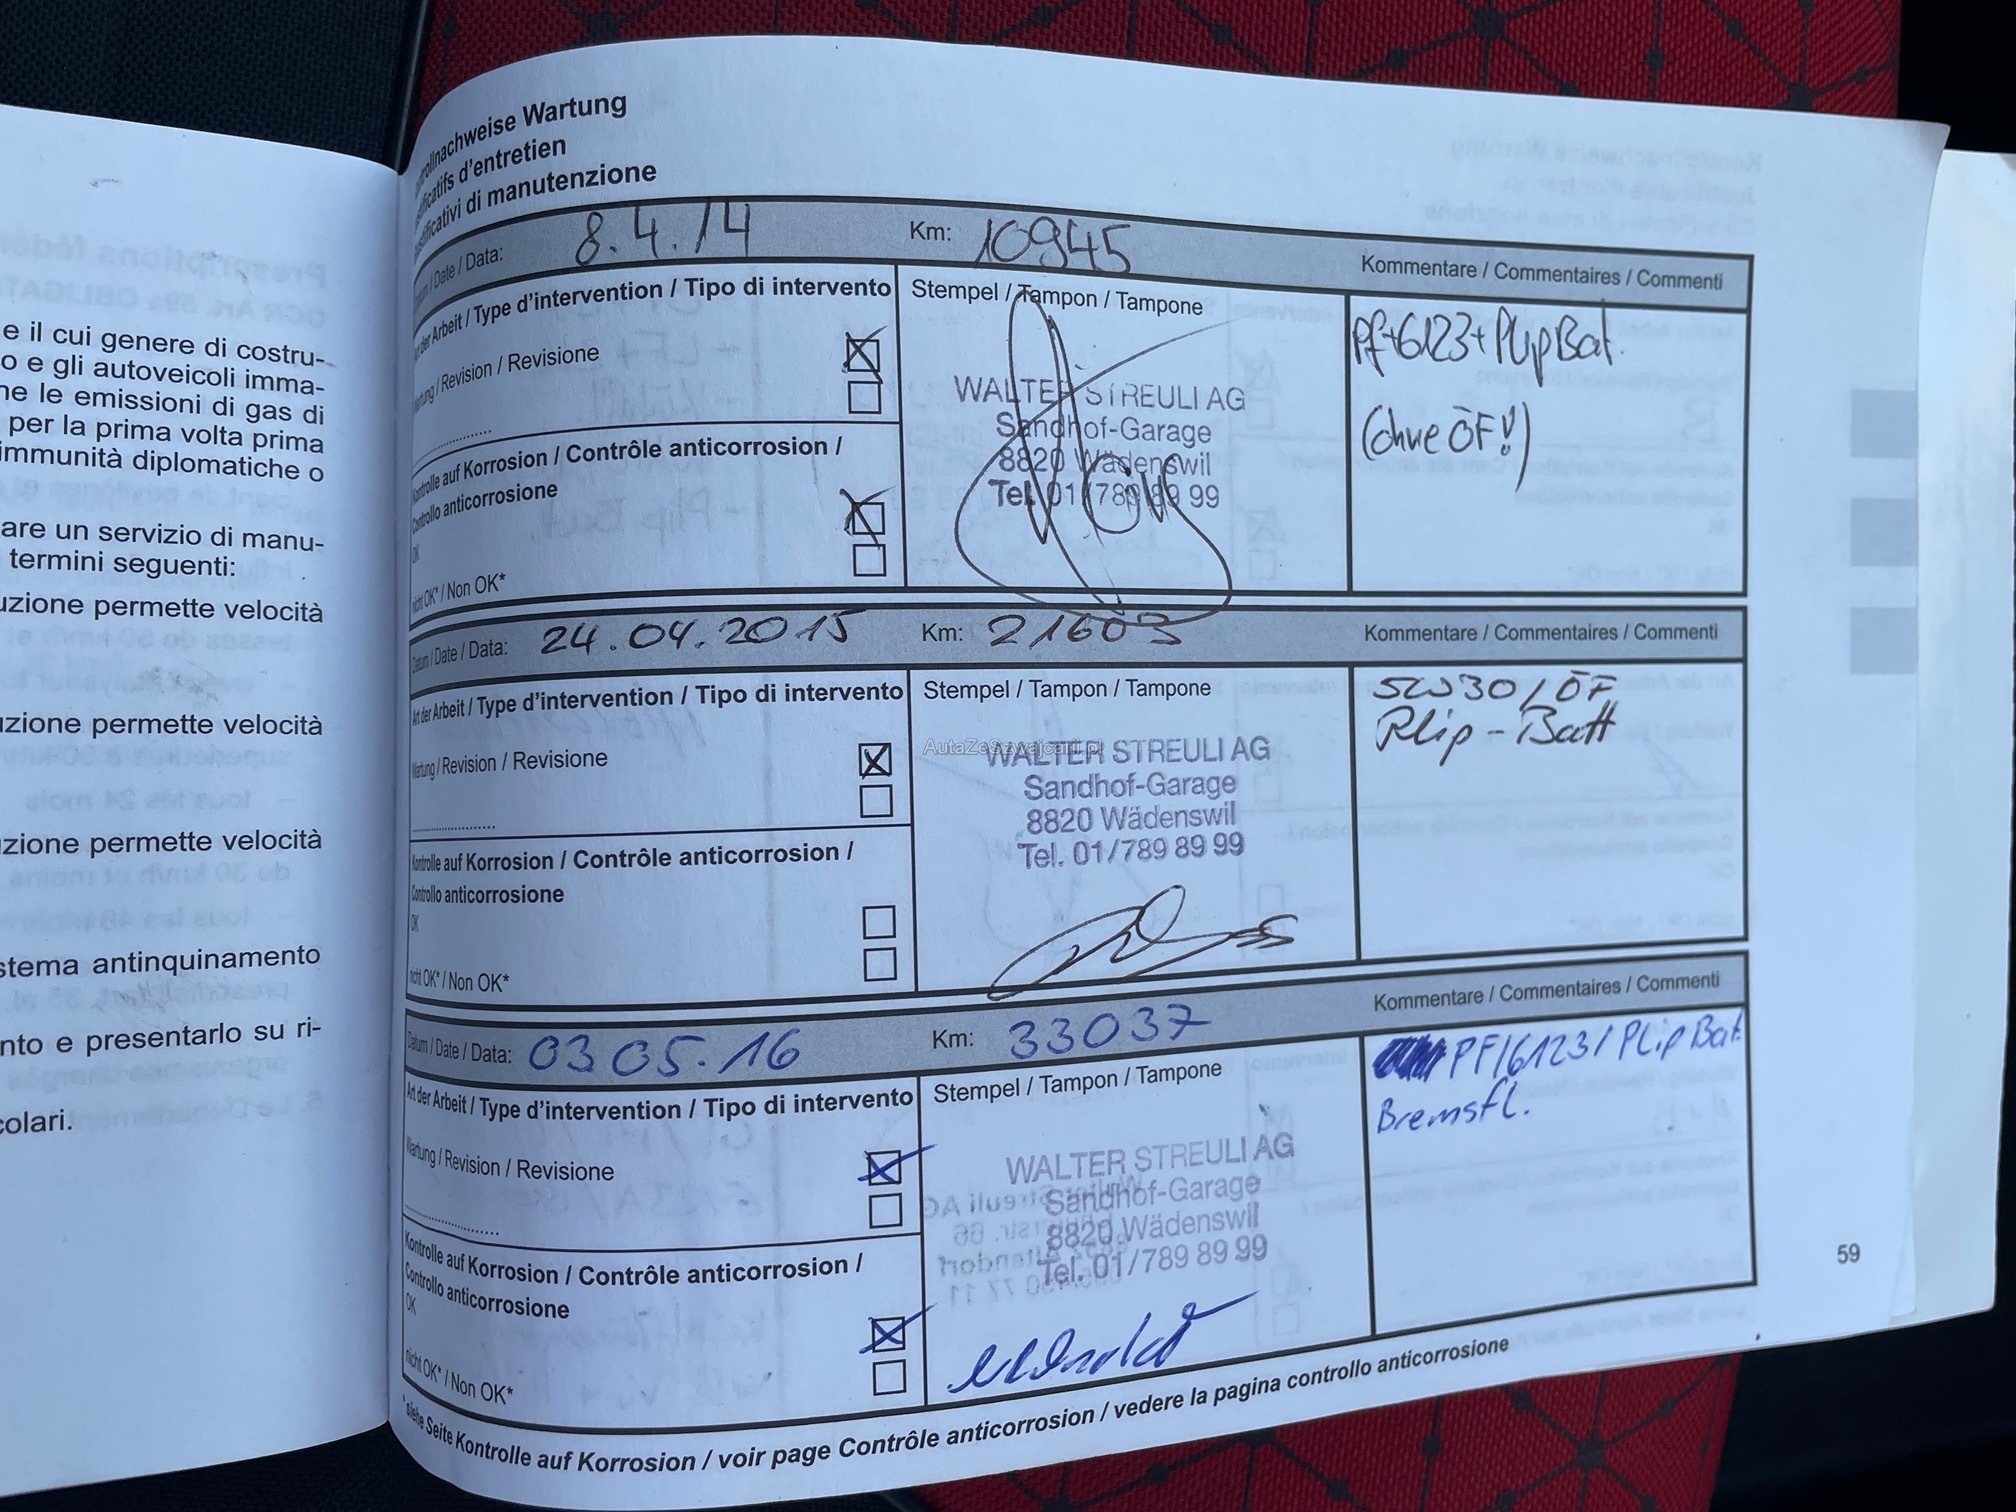 e il cui genere di costru-
o e gli autoveicoli imma-
ne le emissioni di gas di
per la prima volta prima
immunità diplomatiche o
are un servizio di manu-
termini seguenti:
uzione permette velocità
uzione permette velocità
zione permette velocità
stema antinquinamento
nto e presentarlo su ri-
colari.
ntrollnachweise Wartung
stificatifs d'entretien
ustificativi di manutenzione
Datum / Date / Data: 8.4.14 Km: 10945 Kommentare / Commentaires / Commenti
Art der Arbeit / Type d'intervention / Tipo di intervento Stempel / Tampon / Tampone
Pf+6123+Plip Bat.
Wartung / Revision / Revisione
(ohne ÖF!)
WALTER STREULI AG
Sandhof-Garage
8820 Wädenswil
Tel. 01/789 89 99
Kontrolle auf Korrosion / Contrôle anticorrosion /
Controllo anticorrosione
OK
nicht OK* / Non OK*
Datum / Date / Data: 24.04.2015 Km: 21603 Kommentare / Commentaires / Commenti
Art der Arbeit / Type d'intervention / Tipo di intervento Stempel / Tampon / Tampone
5W30/ÖF
Plip-Batt
Wartung / Revision / Revisione
AutaZeSzwajcarii.pl
WALTER STREULI AG
Sandhof-Garage
8820 Wädenswil
Tel. 01/789 89 99
Kontrolle auf Korrosion / Contrôle anticorrosion /
Controllo anticorrosione
OK
nicht OK* / Non OK*
Datum / Date / Data: 03 05.16 Km: 33037 Kommentare / Commentaires / Commenti
Art der Arbeit / Type d'intervention / Tipo di intervento Stempel / Tampon / Tampone
PF/6123/Plip Bat.
Bremsfl.
Wartung / Revision / Revisione
WALTER STREULI AG
Sandhof-Garage
8820 Wädenswil
Tel. 01/789 89 99
Kontrolle auf Korrosion / Contrôle anticorrosion /
Controllo anticorrosione
OK
nicht OK* / Non OK*
* siehe Seite Kontrolle auf Korrosion / voir page Contrôle anticorrosion / vedere la pagina controllo anticorrosione
59